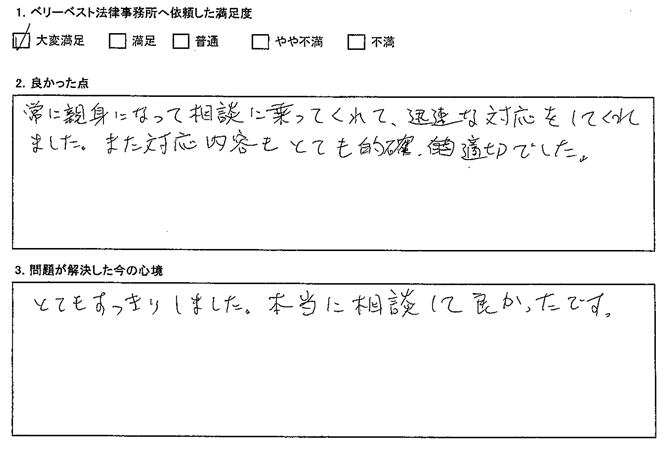 1. ベリーベスト法律事務所へ依頼した満足度
☑ 大変満足 □ 満足 □ 普通 □ やや不満 □ 不満
2. 良かった点
常に親身になって相談に乗ってくれて、迅速な対応をしてくれ
ました。また対応内容もとても的確、適切でした。
3. 問題が解決した今の心境
とてもすっきりしました。本当に相談して良かったです。